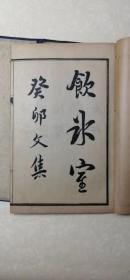 飲冰室
癸卯文集